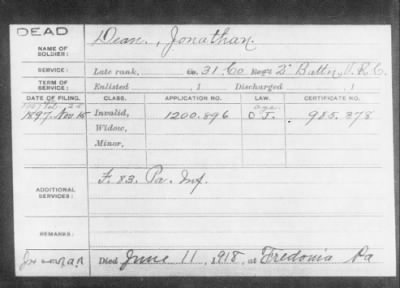 DEAD
NAME OF SOLDIER:
Dean, Jonathan.
SERVICE:
Late rank, Co. 31. Co Reg't 2" Battn, V.R.C.
TERM OF SERVICE:
Enlisted , 1 Discharged , 1
DATE OF FILING. CLASS. APPLICATION NO. LAW. CERTIFICATE NO.
age
1897. Nov. 15 Invalid, 1200.896 O J. 985.378
Widow,
Minor,
ADDITIONAL SERVICES:
F. 83. Pa. Inf.
REMARKS:
Died June 11, 1918, at Fredonia Pa